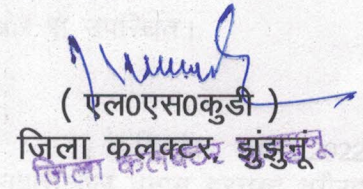 ( एल0एस0कुडी )
जिला कलक्टर, झुंझुनूं
जिला कलक्टर, झुंझुनू